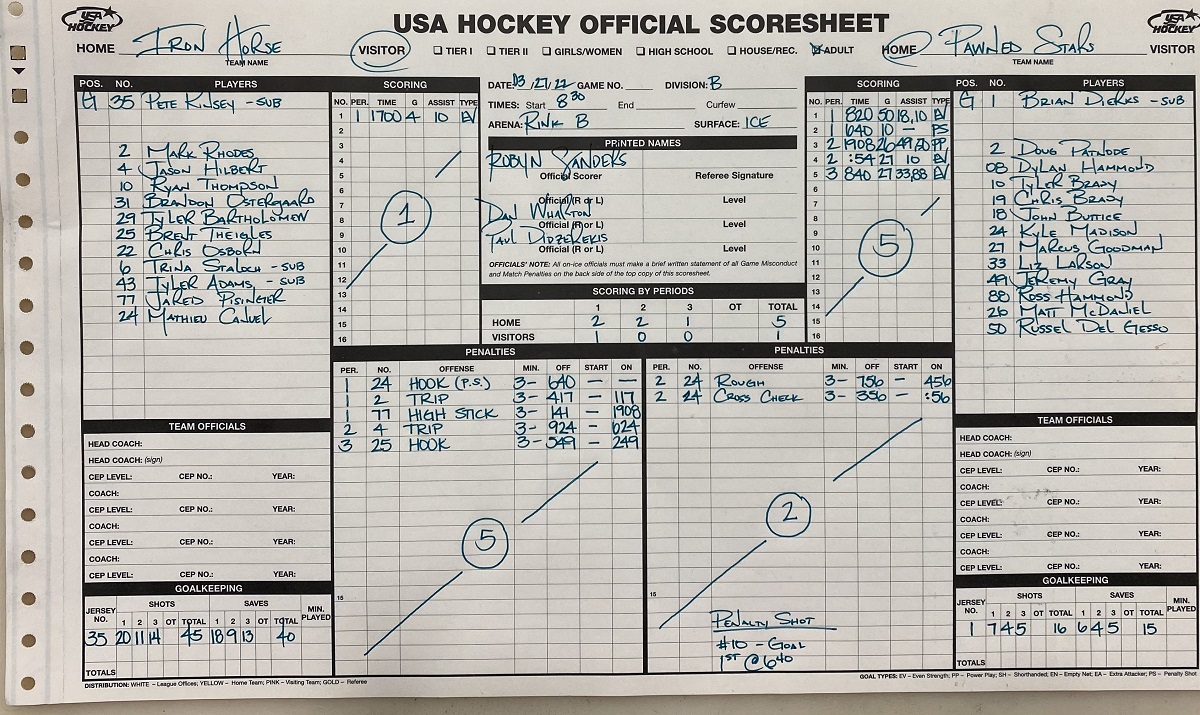 USA HOCKEY OFFICIAL SCORESHEET
USA HOCKEY
HOME IRON HORSE VISITOR
TEAM NAME
☐ TIER I ☐ TIER II ☐ GIRLS/WOMEN ☐ HIGH SCHOOL ☐ HOUSE/REC. ☒ ADULT
HOME PAWNED STARS VISITOR
TEAM NAME
USA HOCKEY
POS. NO. PLAYERS
G 35 PETE KINSEY - SUB
2 MARK RHODES
4 JASON HILBERT
10 RYAN THOMPSON
31 BRANDON OSTERGAARD
29 TYLER BARTHOLOMEW
25 BRENT THEIGLES
22 CHRIS OSBORN
6 TRINA STALOCH - SUB
43 TYLER ADAMS - SUB
77 JARED PISINGER
24 MATHIEU CANUEL
SCORING
NO. PER. TIME G ASSIST TYPE
1 1 1700 4 10 EV
2
3
4
5
6
7
8
9
10
11
12
13
14
15
16
1
DATE: 03/27/22 GAME NO. DIVISION: B
TIMES: Start 8 30 End Curfew
ARENA: RINK B SURFACE: ICE
PRINTED NAMES
ROBYN SANDERS
Official Scorer Referee Signature
Official (R or L) Level
DAN WHARTON
Official (R or L) Level
PAUL DIDZEREKIS
Official (R or L) Level
OFFICIALS' NOTE: All on-ice officials must make a brief written statement of all Game Misconduct
and Match Penalties on the back side of the top copy of this scoresheet.
SCORING BY PERIODS
1 2 3 OT TOTAL
HOME 2 2 1 5
VISITORS 1 0 0 1
SCORING
NO. PER. TIME G ASSIST TYPE
1 1 820 50 18,10 EV
2 1 640 10 — PS
3 2 1908 26 49,50 PP
4 2 :54 27 10 EV
5 3 840 27 33,88 EV
6
7
8
9
10
11
12
13
14
15
16
5
POS. NO. PLAYERS
G 1 BRIAN DIERKS - SUB
2 DOUG PATNODE
08 DYLAN HAMMOND
10 TYLER BRADY
19 CHRIS BRADY
18 JOHN BUTTICE
24 KYLE MADISON
27 MARCUS GOODMAN
33 LIZ LARSON
49 JEREMY GRAY
88 ROSS HAMMOND
26 MATT MCDANIEL
50 RUSSEL DEL GESSO
PENALTIES
PER. NO. OFFENSE MIN. OFF START ON
1 24 HOOK (P.S.) 3- 640 — —
1 2 TRIP 3- 417 — 117
1 77 HIGH STICK 3- 141 — 1908
2 4 TRIP 3- 924 — 624
3 25 HOOK 3- 549 — 249
5
15
PENALTIES
PER. NO. OFFENSE MIN. OFF START ON
2 24 ROUGH 3- 756 — 456
2 24 CROSS CHECK 3- 356 — :56
2
15
PENALTY SHOT
#10 - GOAL
1ST @ 640
TEAM OFFICIALS
HEAD COACH:
HEAD COACH: (sign)
CEP LEVEL: CEP NO.: YEAR:
COACH:
CEP LEVEL: CEP NO.: YEAR:
COACH:
CEP LEVEL: CEP NO.: YEAR:
COACH:
CEP LEVEL: CEP NO.: YEAR:
GOALKEEPING
JERSEY NO. SHOTS SAVES MIN. PLAYED
1 2 3 OT TOTAL 1 2 3 OT TOTAL
35 20 11 14 45 18 9 13 40
TOTALS
TEAM OFFICIALS
HEAD COACH:
HEAD COACH: (sign)
CEP LEVEL: CEP NO.: YEAR:
COACH:
CEP LEVEL: CEP NO.: YEAR:
COACH:
CEP LEVEL: CEP NO.: YEAR:
COACH:
CEP LEVEL: CEP NO.: YEAR:
GOALKEEPING
JERSEY NO. SHOTS SAVES MIN. PLAYED
1 2 3 OT TOTAL 1 2 3 OT TOTAL
1 7 4 5 16 6 4 5 15
TOTALS
DISTRIBUTION: WHITE – League Offices; YELLOW – Home Team; PINK – Visiting Team; GOLD – Referee
GOAL TYPES: EV – Even Strength; PP – Power Play; SH – Shorthanded; EN – Empty Net; EA – Extra Attacker; PS – Penalty Shot